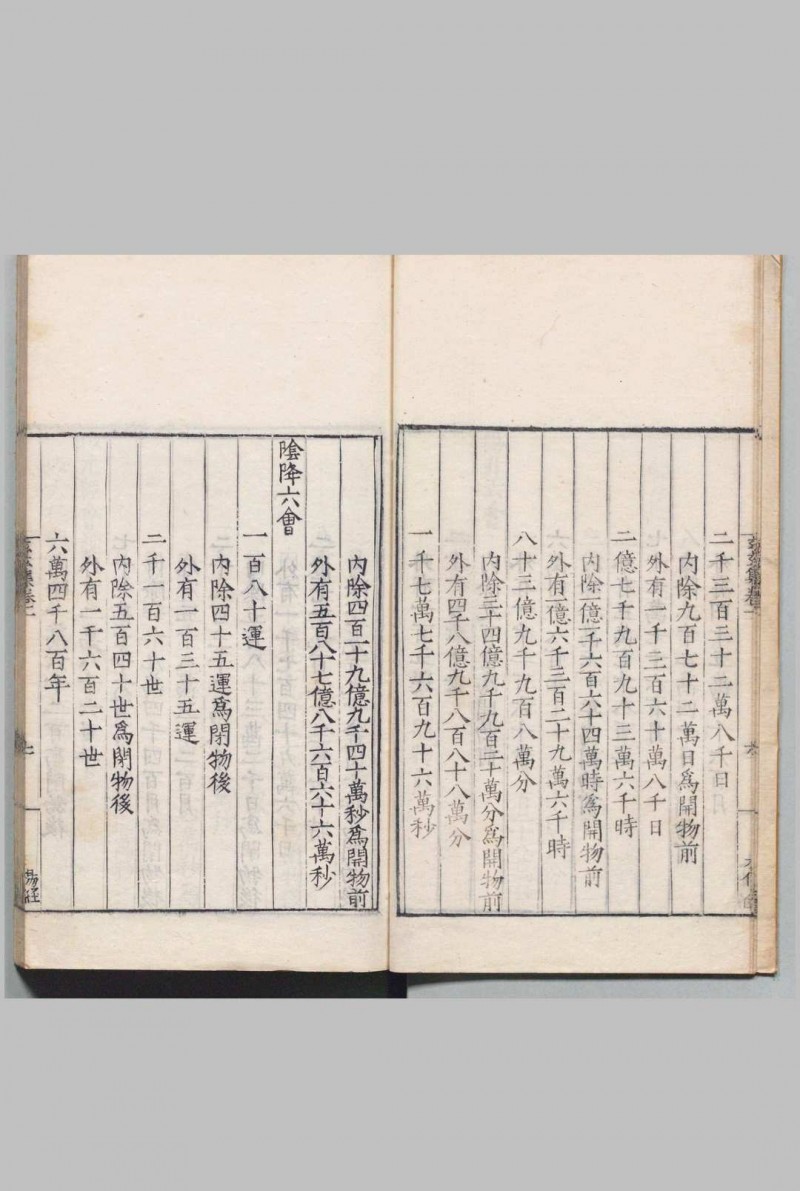 二千三百三十二萬八千日
內除九百七十二萬日爲開物前
外有一千三百六十萬八千日
二億七千九百九十三萬六千時
內除一億一千六百六十四萬時爲開物前
外有一億六千三百二十九萬六千時
八十三億九千九百八萬分
內除三十四億九千九百二十萬分爲開物前
外有四十八億九千八百八十八萬分
一千七萬七千六百九十六萬秒
內除四百一十九億九千四十萬秒爲開物前
外有五百八十七億八千六百六十六萬秒
陰降六會
一百八十運
內除四十五運爲閉物後
外有一百三十五運
二千一百六十世
內除五百四十世爲閉物後
外有一千六百二十世
六萬四千八百年